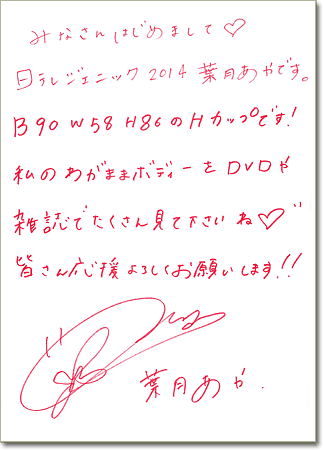 みなさんはじめまして♡
日テレジェニック2014 葉月あやです。
B90 W58 H86のHカップです!
私のわがままボディーをDVDや
雑誌でたくさん見て下さいね♡"
皆さん応援よろしくお願いします!!
葉月あや.